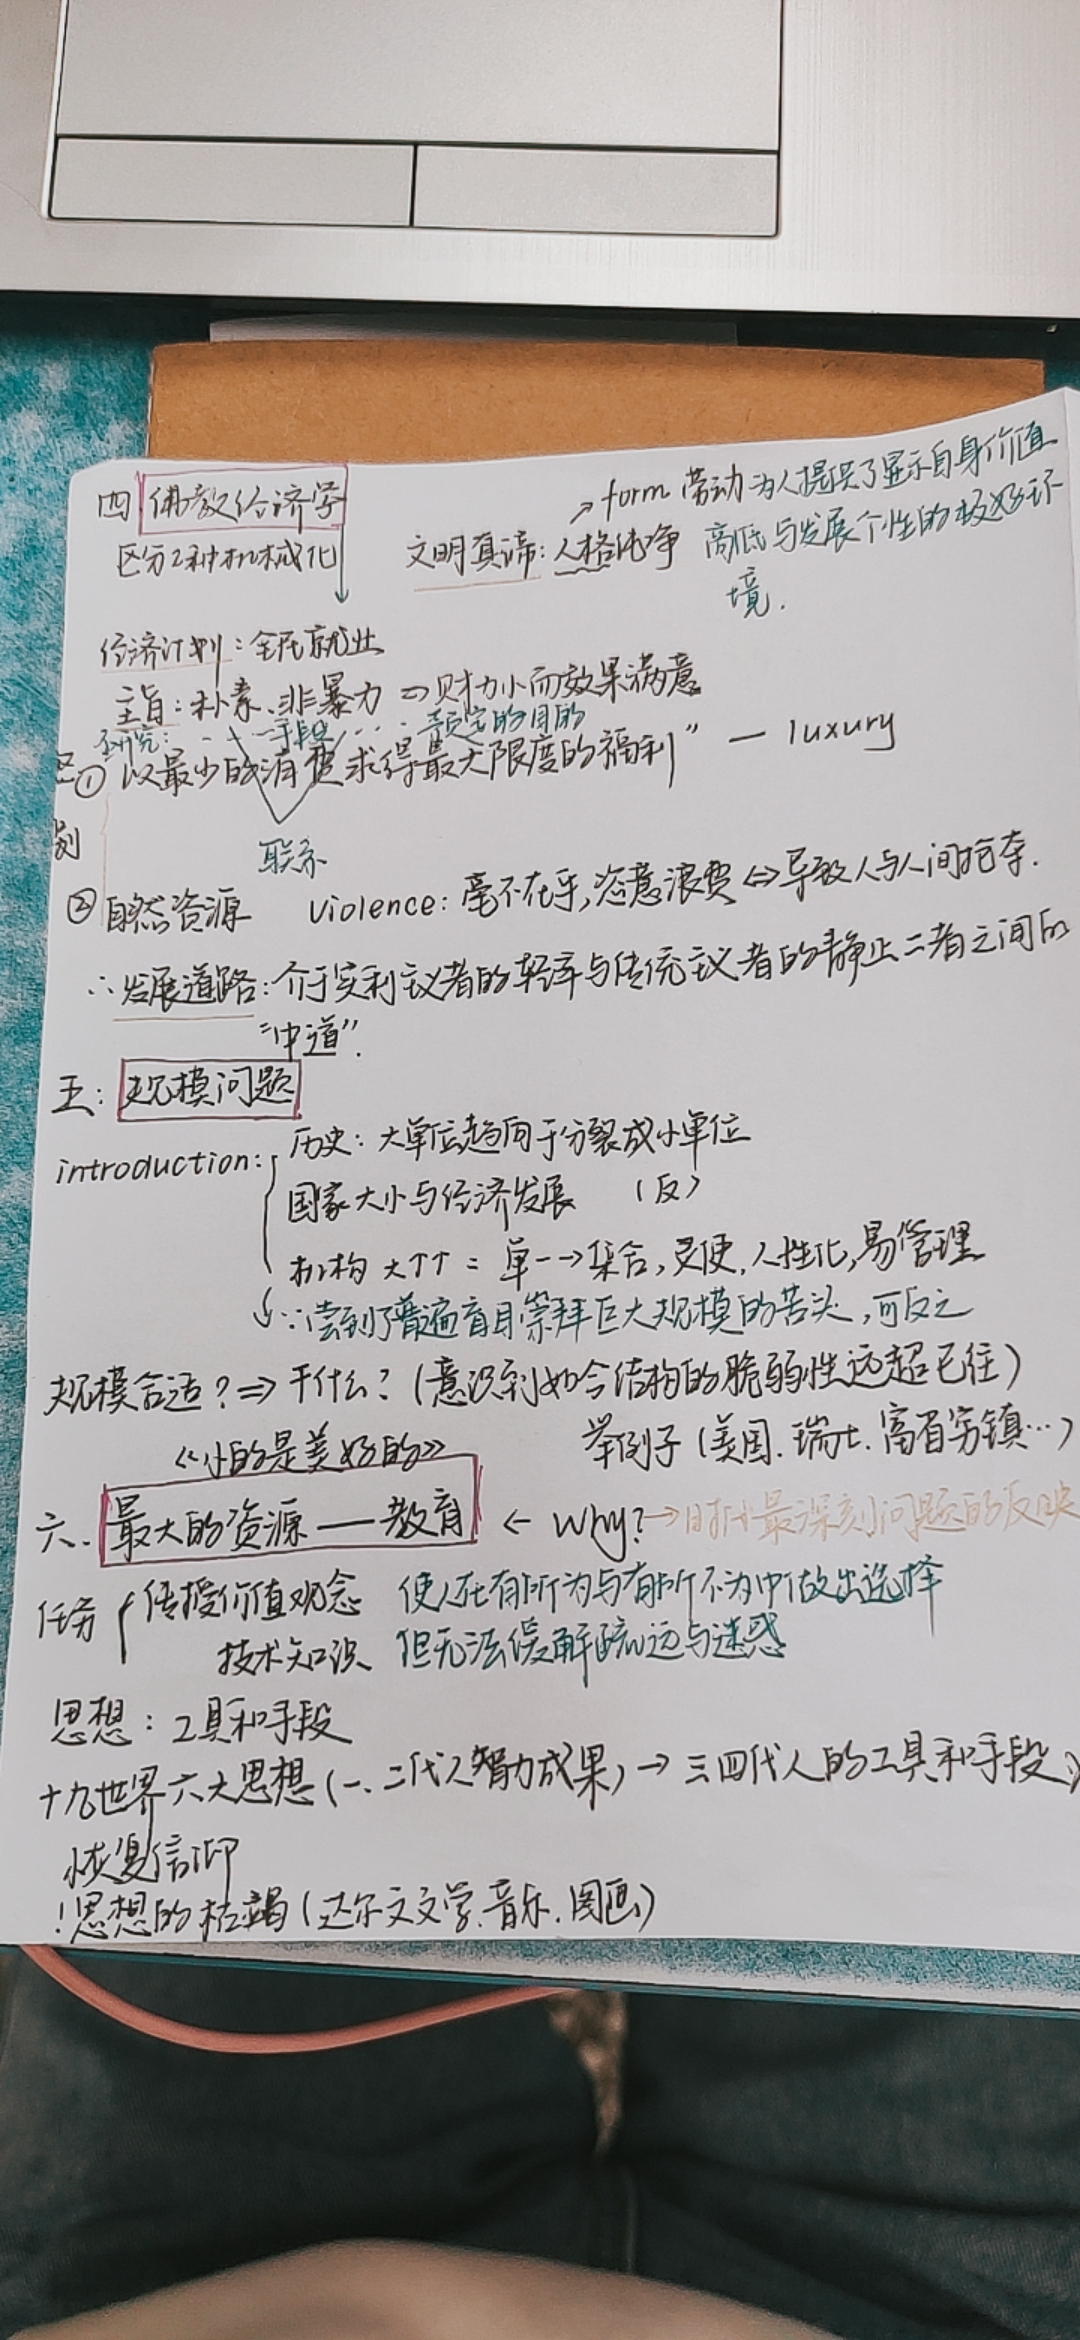 四 佛教经济学
区分2种机械化
→form 劳动为人提供了显示自身价值
文明真谛：人格纯净 高低与发展个性的极好环
境.
经济计划：全民就业
主旨：朴素、非暴力 ⇒财力小而效果满意
研究：……手段，……预定的目的
区别
① 以最少的消费求得最大限度的福利" — luxury
联系
② 自然资源 violence: 毫不在乎,恣意浪费⇔导致人与人间抢夺.
∴发展道路：介于实利主义者的轻率与传统主义者的静止二者之间的
"中道".
五：规模问题
introduction: 历史：大单位趋向于分裂成小单位
国家大小与经济发展 （反）
机构 大↑↑ = 单一→集合,灵便,人性化,易管理
∵尝到了普遍盲目崇拜巨大规模的苦头,可反之
规模合适？⇒ 干什么？(意识到如今结构的脆弱性远超已往)
《小的是美好的》 举例子（美国.瑞士.富省穷镇…）
六、最大的资源——教育 ← why?→时代最深刻问题的反映
任务 传授价值观念 使人在有所为与有所不为中做出选择
技术知识 但无法缓解疏远与迷惑
思想：工具和手段
十九世界六大思想(一、二代人智力成果)→三四代人的工具和手段
恢复信仰
！思想的枯竭(达尔文文学.音乐.图画)